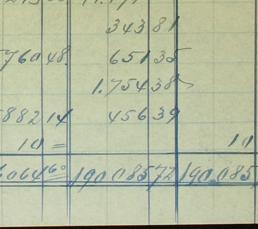 343 81
760 48 651 35
1.754 38
882 14 456 39
10 = 10
6064 60 190.085 72 190.085